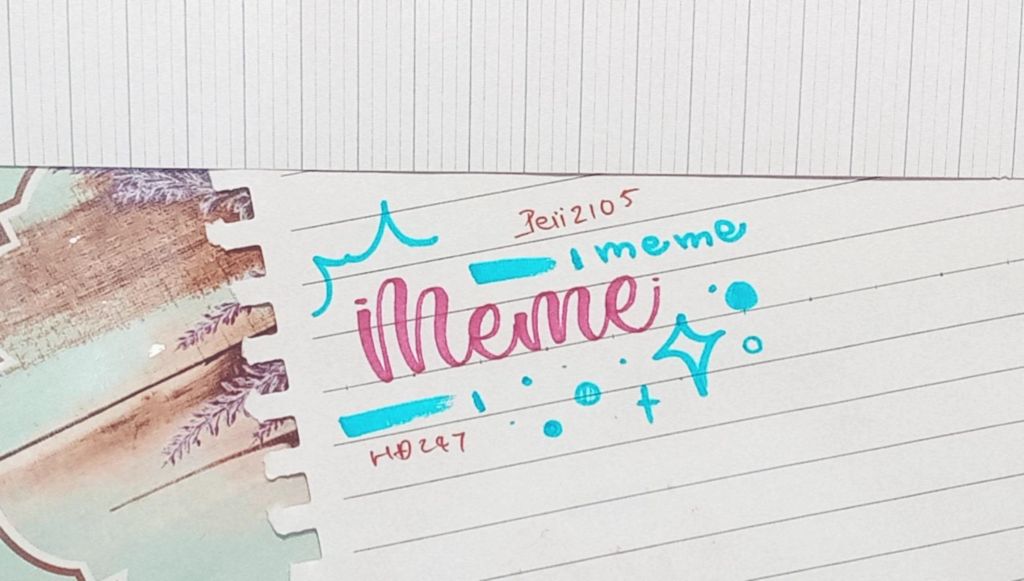 Peii2105
meme
Meme
HĐ247